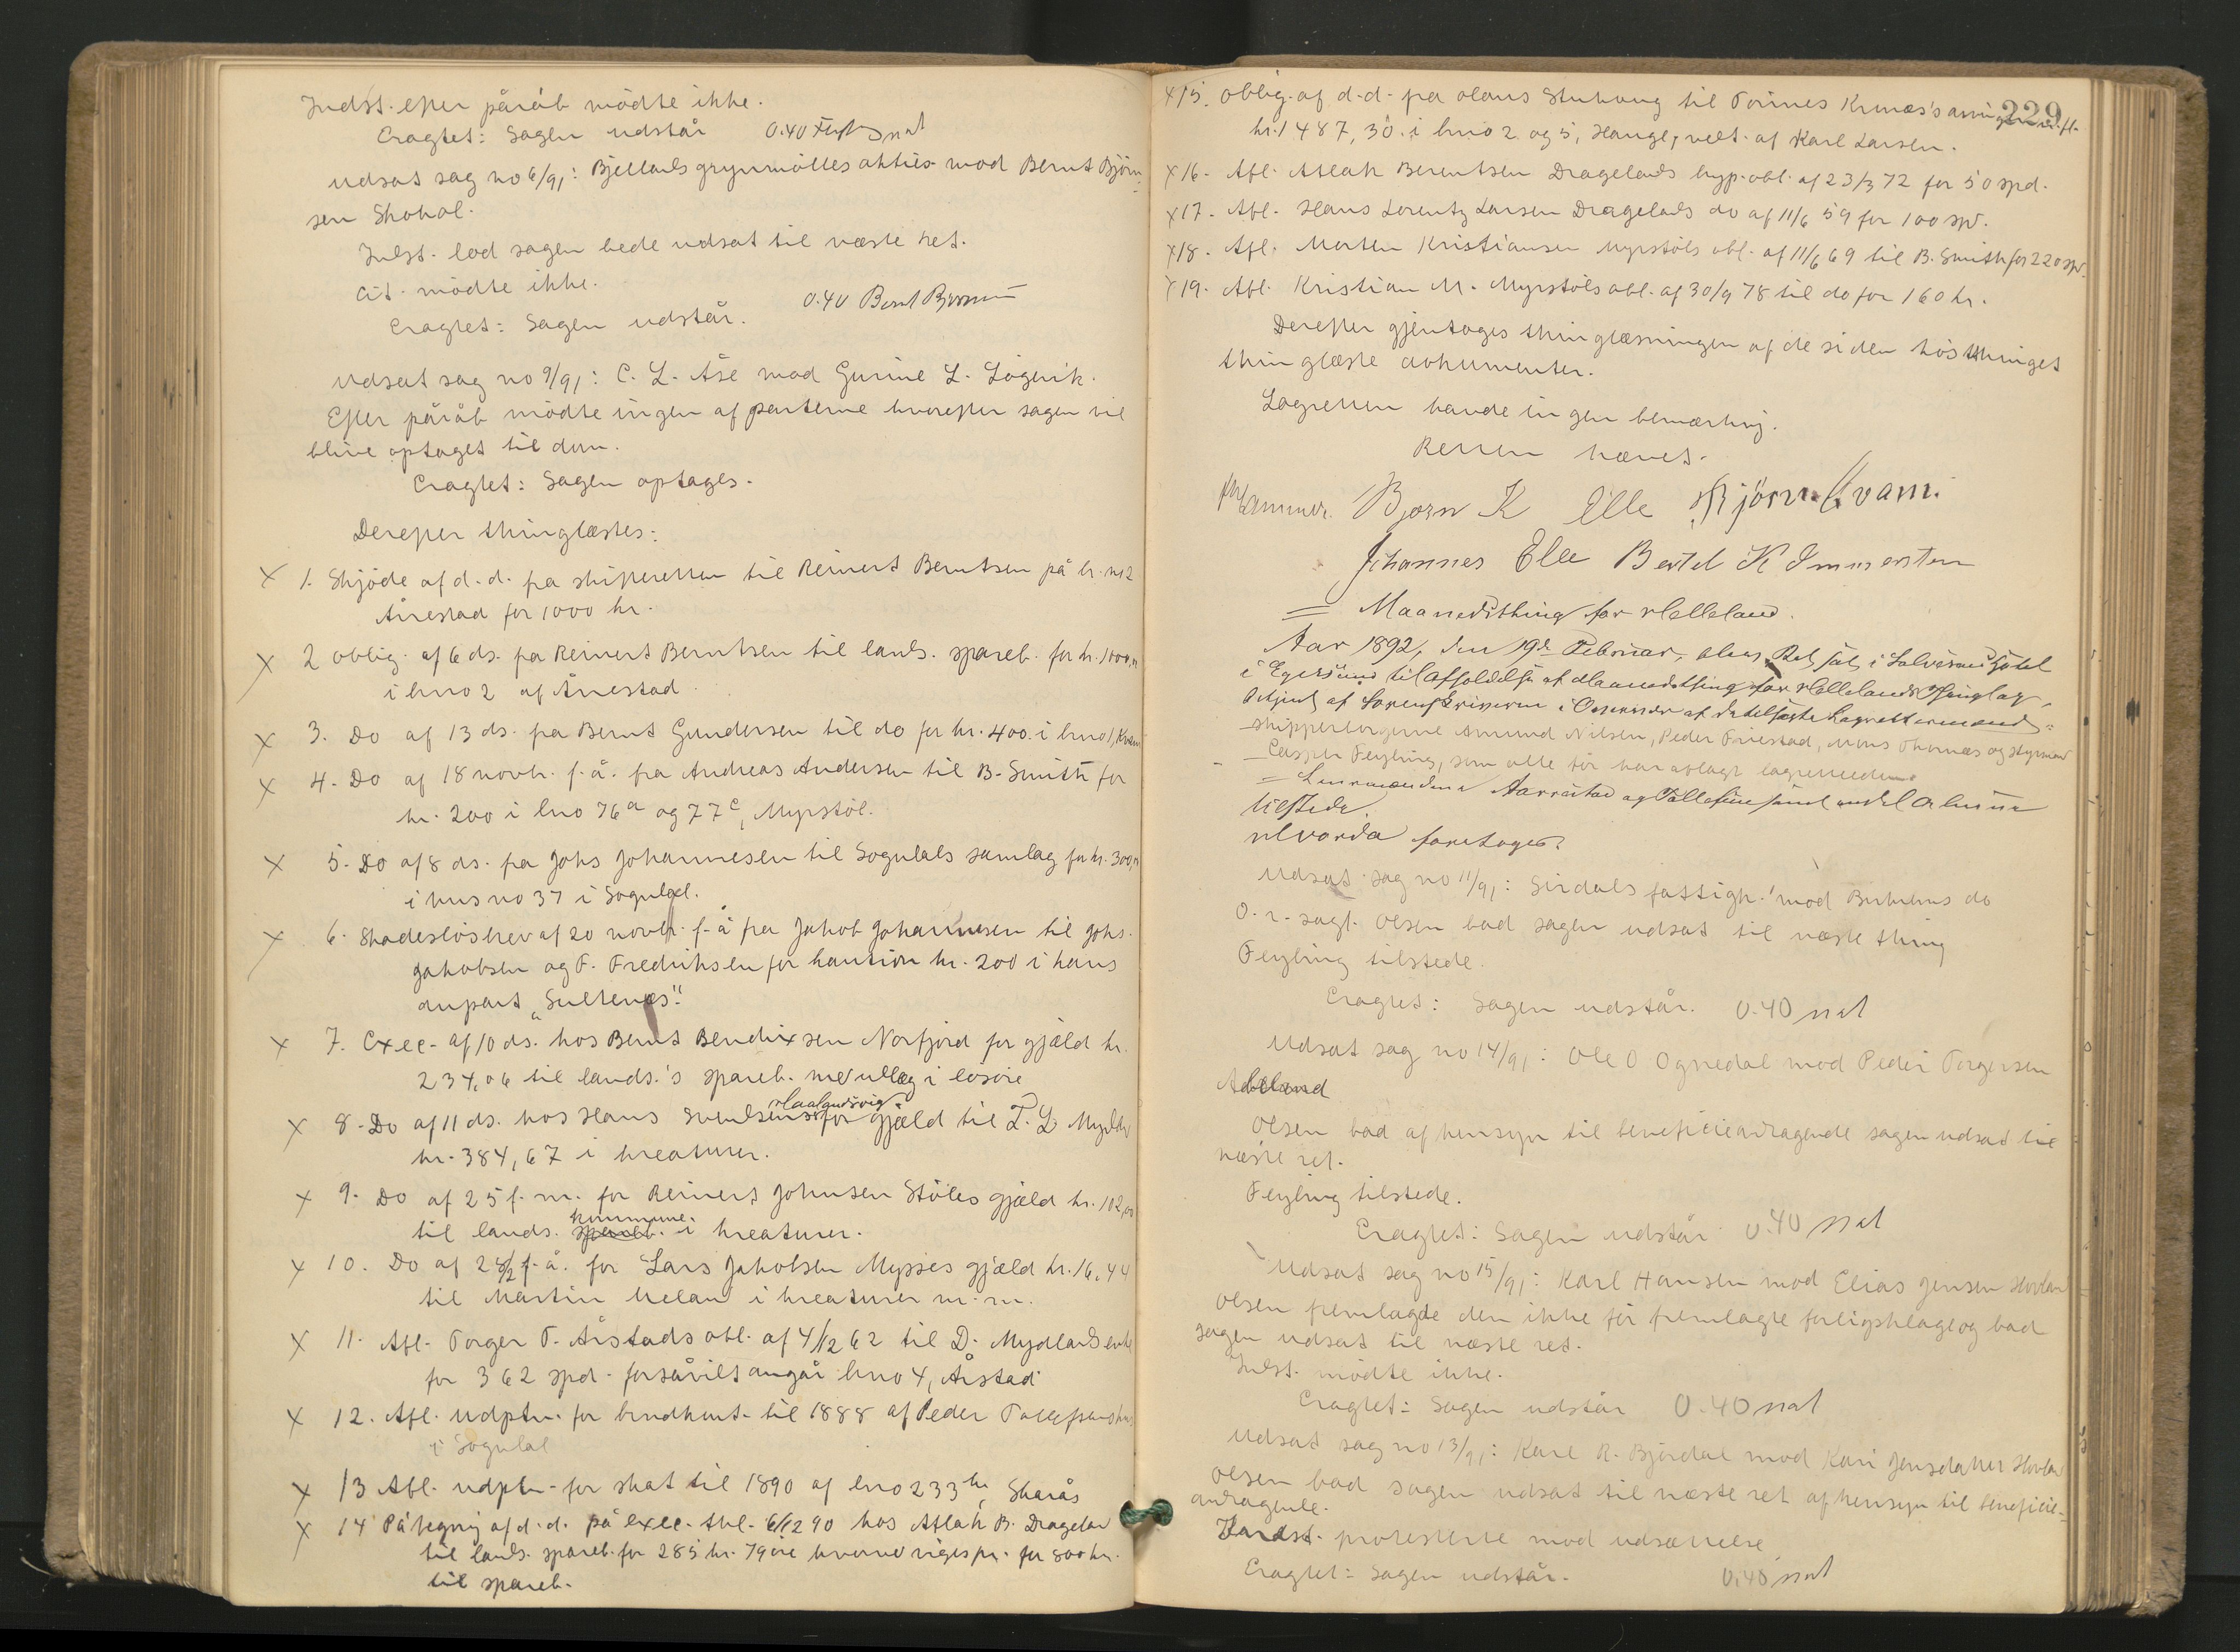 Indst. efter påråb mödte ikke.
Eragtet: Sagen udstår 0.40
Udsat sag no 6/91: Bjellands grynmølles akties- mod Bernt Björn-
sen Skoval.
Indst. lod sagen bede udsat til næste ret.
Cit. mödte ikke.
Eragtet: Sagen udstår. 0.40
Udsat sag no 9/91: C. L. Åse mod Gurine L. Lögevik.
Efter påråb mödte ingen af parterne hvorefter sagen vil
blive optaget til dom.
Eragtet: Sagen optages.
Derefter thinglæstes:
x 1. Skjöde af d.d. fra skifteretten til Reinert Berntsen på br. no 2
Årrestad for 1000 kr.
x 2 oblig. af 6 ds. fra Reinert Berntsen til lands. spareb. for kr. 1000,
i bno 2 af Årrestad
x 3. Do af 13 ds. fra Bernt Gundersen til do for kr. 400. i bno 1, Kvam
x 4. Do af 18 novb. f. å. fra Andreas Andersen til B. Smith for
kr. 200 i lno 76a og 77c, Myrstöl.
x 5. Do af 8 ds. fra Johs Johannesen til Sogndals samlag for kr. 300,
i hus no 37 i Sogndal.
x 6. Skadeslösbrev af 20 novb. f. å fra Jakob Johannesen til Johs.
Jakobsen og F. Fredriksen for kaution kr. 200 i hans
anpart "Sultenæs".
x 7. Exec. af 10 ds. hos Bernt Bendixsen Norfjord for gjæld kr.
234,06 til lands.'s spareb. med udlæg i losöre
x 8. Do af 11 ds. hos Hans Svendsens Haalandsvig for gjæld til T. L. Mydl
kr. 384,67 i kreaturer.
x 9. Do af 25 f. m. for Reinert Johnsen Stöles gjæld kr. 102,00
til lands. spareb. kommune i kreaturer.
x 10. Do af 28/2 f. å. for Lars Jakobsen Mysses gjæld kr. 16,44
til Martin Meland i kreaturer m. m.
x 11. Afl. Torger T. Årstads obl. af 4/12 62 til D. Mydlands enke
for 362 spd. forsåvidt angår bno 4, Årstad
x 12. Afl. udptn. for brndkont. til 1888 af Peder Tollefsens hus
i Sogndal
x 13 Afl. udptn. for skat til 1890 af lno 233 Skarås
x 14 Påtegning af d.d. på exec. thl. 6/12 90 hos Atlak B. Drageland
til lands. spareb. for 285 kr. 79 öre hvorved viges pr. for 800 kr.
til spareb.
229
x 15. oblig. af d.d. fra Olaus Stuhaug til Tönnes
kr. 1487,30. i bno 2 og 5, Hauge, vedt. af Karl Larsen.
x 16. Afl. Atlak Berentsen Dragelands hyp. obl. af 23/3 72 for 50 spd.
x 17. Afl. Hans Lorentz Larsen Dragelands do af 11/6 59 for 100 spd.
x 18. Afl. Morten Kristiansen Myrstöls obl. af 11/6 69 til B. Smith for 220 spd.
x 19. Afl. Kristian M. Myrstöls obl. af 30/9 78 til do for 160 kr.
Derefter gjentoges thinglæsningen af de siden höstthinget
thinglæste dokumenter.
Lagretten havde ingen bemærkning.
Retten hævet.
Hammer. Bjorn K Elle Björn Kvam.
Johannes Elle Bertel K Immersten
= Maanedsthing for Helleland.
Aar 1892, den 19de Februar, blev Ret sat i Salvesens Hotel
i Egersund til Afholdelse af Maanedsthing for Hellelands Thinglag,
betjent af Sorenskriveren i Overvær af de tilsagte Lagrettesmænd:
skipperborgerne Amund Nilsen, Peder Friestad, Mons Thornæs og styrmand
Casper Feyling, som alle för har aflagt lagretteeden.
= Lensmændene Aarrestad og Tollefsen samt endel Almue
tilstede.
Hvorda foretoges:
Udsat sag no 11/91: Sirdals fattigk. mod Birkrems do
O. r. sagf. Olsen bad sagen udsat til næste thing
Feyling tilstede.
Eragtet: Sagen udstår. 0.40 not
Udsat sag no 14/91: Ole O Ognedal mod Peder Torgersen
Abeland
Olsen bad af hensyn til beneficieandragende sagen udsat til
næste ret.
Feyling tilstede.
Eragtet: Sagen udstår 0.40 not
Udsat sag no 15/91: Karl Hansen mod Elias Jensen Hovland
Olsen fremlagde den ikke för fremlagte forligsklage og bad
sagen udsat til næste ret.
Indst. mödte ikke.
Eragtet: Sagen udstår 0.40 not
Udsat sag no 13/91: Karl R. Björdal mod Kari Jensdatter Hovland
Olsen bad sagen udsat til næste ret af hensyn til beneficie-
andragende.
Indst. protesterte mod udsættelse
Eragtet: Sagen udstår. 0.40 not